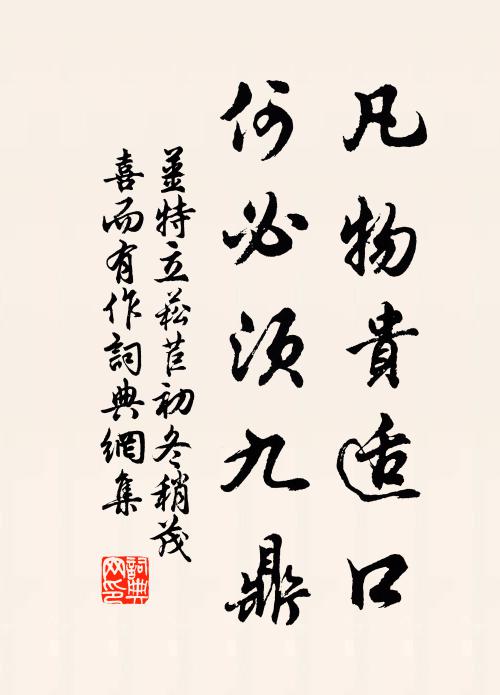 凡物貴适口
何必須九鼎
姜特立菘苣初冬稍茂
喜而有作詞典網集
詞典网印